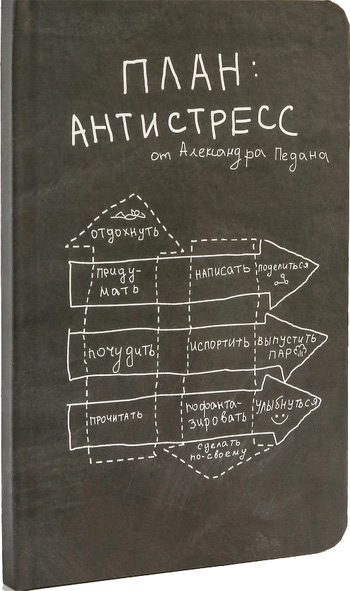 ПЛАН:
АНТИСТРЕСС
от Александра Педана
отдохнуть
приду-
мать
написать
поделиться
почудить
испортить
выпустить
пар
прочитать
пофанта-
зировать
улыбнуться
сделать
по-своему